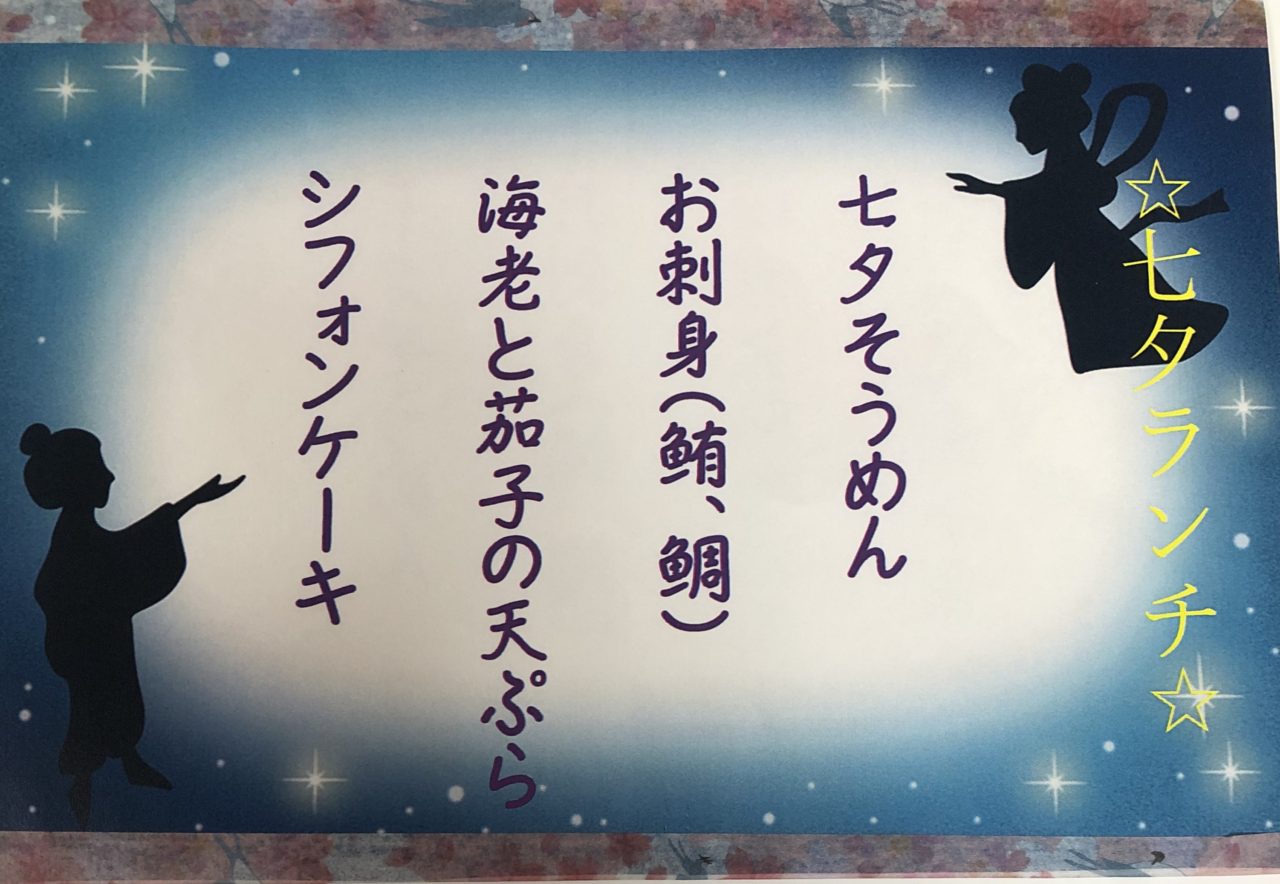 ☆七夕ランチ☆
七夕そうめん
お刺身(鮪、鯛)
海老と茄子の天ぷら
シフォンケーキ